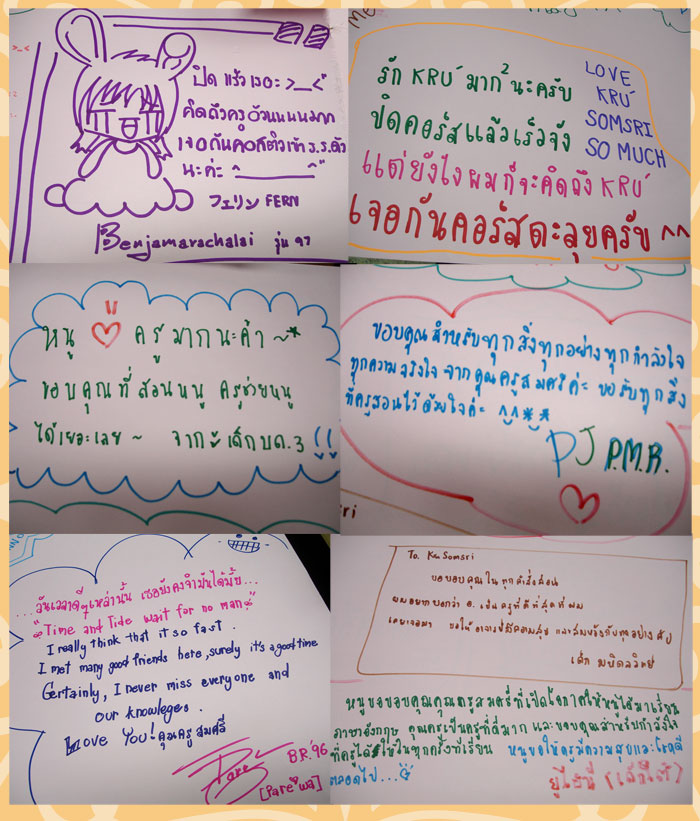 ปิดแร้วเงอะ >_<"
คิดถึงครูอ้วนนนนมากก
เจอกันคอสติวเข้า ร.ร.ดัง
นะค่ะ ^______^"
FERN
Benjamarachalai รุ่น 97
รัก KRU มาก² นะครับ
ปิดคอร์สแล้วเร็วจัง
LOVE
KRU
SOMSRI
SO MUCH
แต่ยังไงผมก็จะคิดถึง KRU
เจอกันคอร์สตะลุยครับ ^^
หนู ♡ ครูมากนะค้า ~*
ขอบคุณที่สอนหนู ครูช่วยหนู
ได้เยอะเลย ~ จากเด็กบด.3
ขอบคุณสำหรับทุกสิ่งทุกอย่างทุกกำลังใจ
ทุกความจริงใจ จากคุณครูสมศรีค่ะ ขอรับทุกสิ่ง
ที่ครูสอนไว้ด้วยใจค่ะ ^^**
PJ P.M.R.
...วันเวลาดีๆเหล่านั้น เธอยังคงจำมันได้มั้ย...
"Time and Tide wait for no man"
I really think that it so fast.
I met many good friends here, surely it's a good time
Certainly, I never miss everyone and
our knowleges.
Love You! คุณครูสมศรี
Pare
B.R.'96
[Pare'wa]
To. Kru Somsri
ขอขอบคุณในทุกคำสั่งสอน
ผมอยากบอกว่า อ. เป็นครูที่ดีที่สุดที่ผม
เคยเจอมา ขอให้อาจารย์มีความสุข และสมหวังกับทุกอย่างครับ
เด็ก มหิดลวิทย์
หนูขอขอบคุณคุณครูสมศรีที่เปิดโอกาสให้หนูได้มาเรียน
ภาษาอังกฤษ คุณครูเป็นครูที่ดีมาก และขอบคุณสำหรับกำลังใจ
ที่ครูได้ให้ในทุกครั้งที่เรียน หนูขอให้ครูมีความสุขและโชคดี
ตลอดไป...